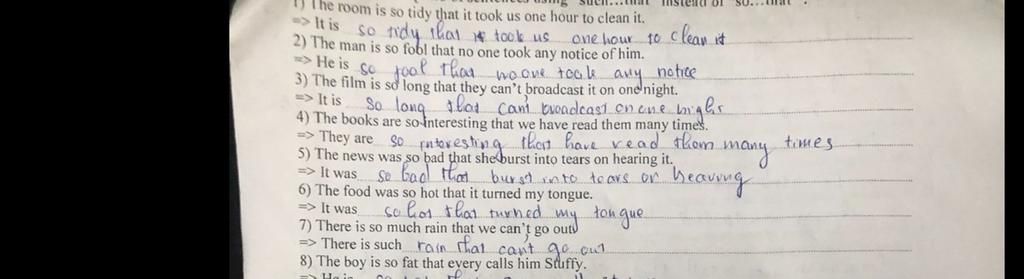 of sentences using "such...that" instead of "so...that".
1) The room is so tidy that it took us one hour to clean it.
=> It is so tidy that it took us one hour to clean it
2) The man is so fobl that no one took any notice of him.
=> He is so fool that no one took any notice
3) The film is so long that they can't broadcast it on one night.
=> It is so long that can't broadcast on one night
4) The books are so interesting that we have read them many times.
=> They are so interesting that have read them many times
5) The news was so bad that she burst into tears on hearing it.
=> It was so bad that burst into tears on hearing
6) The food was so hot that it turned my tongue.
=> It was so hot that turned my tongue
7) There is so much rain that we can't go out
=> There is such rain that can't go out
8) The boy is so fat that every calls him Stuffy.
=> He is